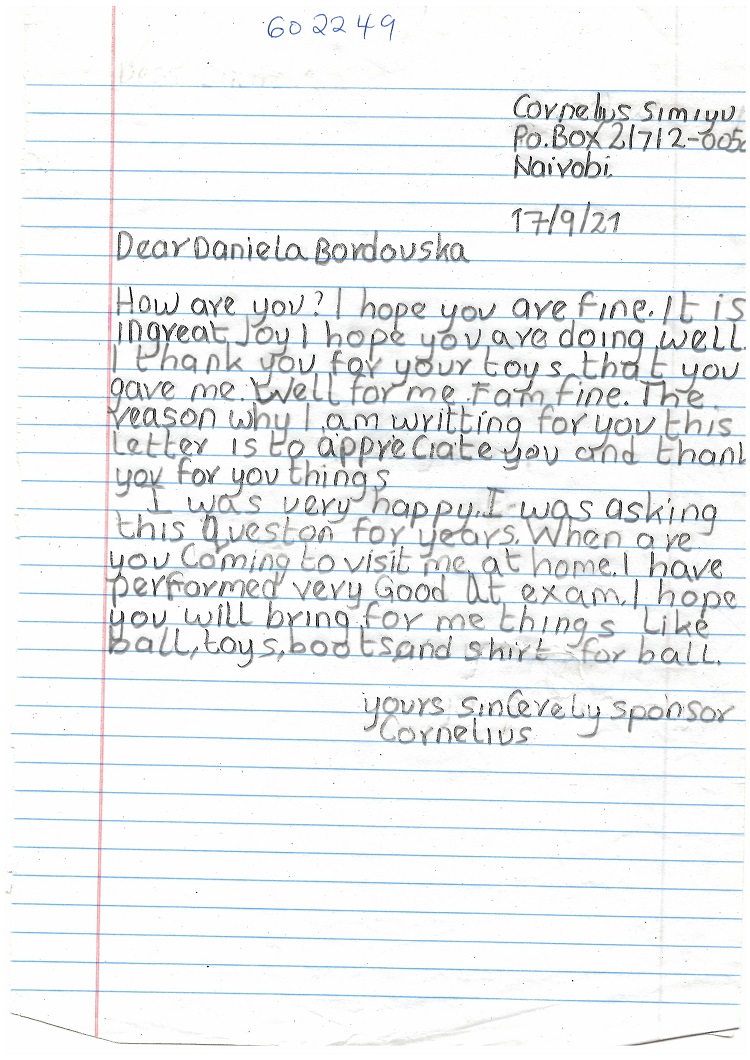 602249
Cornelius Simiyu
Po.Box 21712-005
Nairobi.
17/9/21
Dear Daniela Bordovska
How are you? I hope you are fine. It is
ingreat Joy I hope you are doing well.
I thank you for your toys that you
gave me. Well for me I am fine. The
reason why I am writting for you this
letter is to appreciate you and thank
you for you things
I was very happy. I was asking
this Queston for years. When are
you Coming to visit me at home. I have
performed very Good at exam. I hope
you will bring for me things Like
ball, toys, boots and shirt for ball.
yours sincerely sponsor
Cornelius